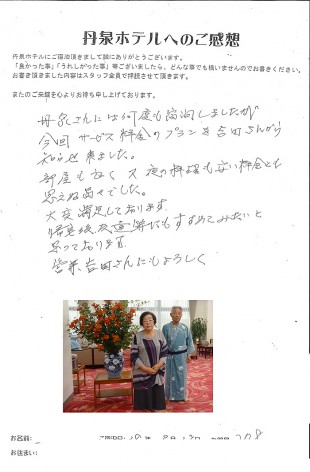 丹泉ホテルへのご感想
丹泉ホテルにご宿泊頂きまして誠にありがとうございます。
「良かった事」「うれしかった事」等ございましたら、どんな事でも構いませんのでお書きください。
お書き頂きました内容はスタッフ全員で拝読させて頂きます。
またのご来館を心よりお待ち申し上げております。
丹泉さんには何度も宿泊しましたが
今回サービス料金のプランを吉田さんから
知らせ来ました。
部屋も良く又夜の料理も安い料金とも
思えぬ品々でした。
大変満足しております
帰宅後友達等にもすすめてみたいと
思っております
営業吉田さんにもよろしく
お名前:
お住まい: